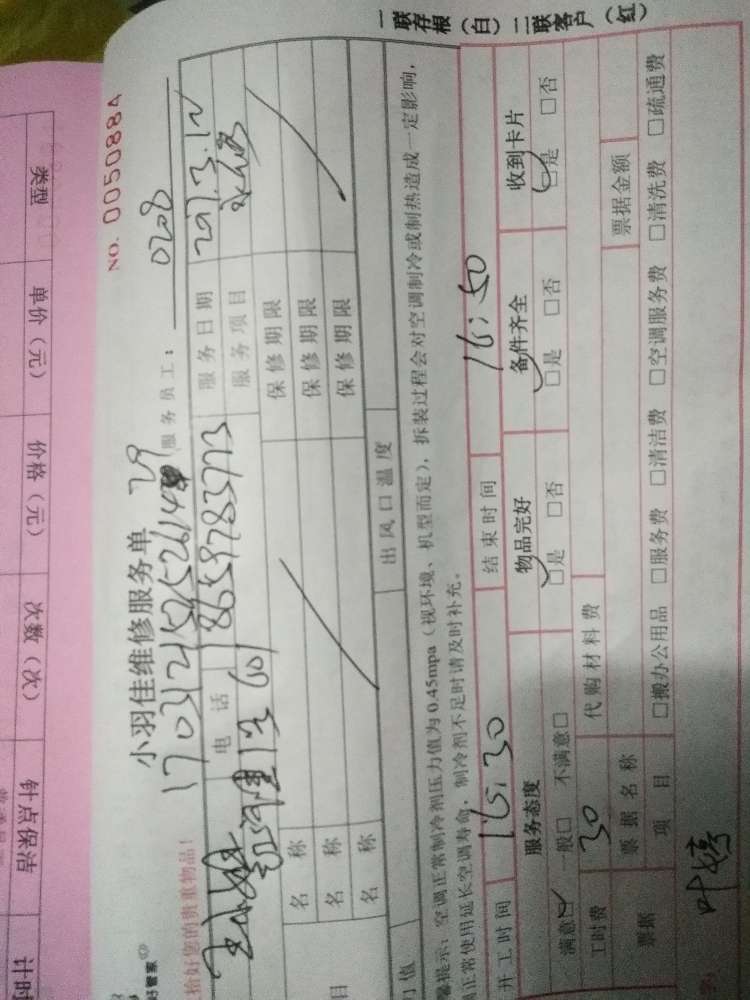 一联存根（白）二联客户（红）
NO. 0050884
小羽佳维修服务单
服务员工： 0208
拾好您的贵重物品！
好管家
电话 18659783773 服务日期 2017.3.12
服务项目
名称 保修期限
名称 保修期限
名称 保修期限
出风口温度
提示：空调正常制冷剂压力值为0.45mpa（视环境、机型而定），拆装过程会对空调制冷或制热造成一定影响，
正常使用延长空调寿命，制冷剂不足时请及时补充。
开工时间 15:30 结束时间 16:50
服务态度 物品完好 备件齐全 收到卡片
满意□ 一般□ 不满意□ □是 □否 □是 □否 □是 □否
工时费 30 代购材料费
票据 票据名称 票据金额
项目 □搬办公用品 □服务费 □清洁费 □空调服务费 □清洗费 □疏通费
叶婷
类型 单价（元） 价格（元） 次数（次） 钟点保洁 计时